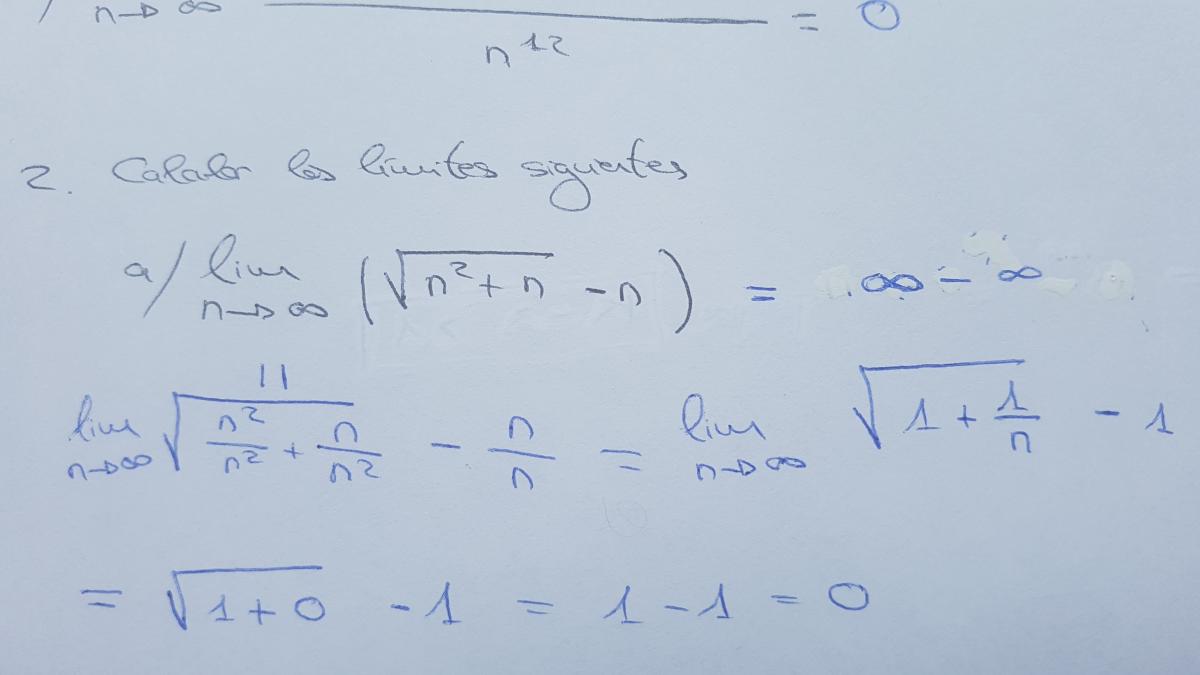 / n→∞ ――― n^12 = 0
2. Calcular los límites siguientes
a/ lim n→∞ (√(n²+n) - n) = ∞ - ∞
||
lim n→∞ √(n²/n² + n/n²) - n/n = lim n→∞ √(1 + 1/n) - 1
= √(1+0) - 1 = 1 - 1 = 0